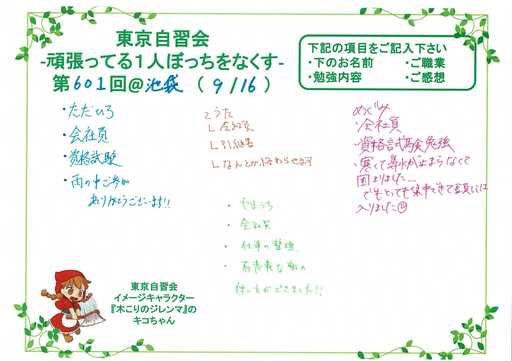 東京自習会
-頑張ってる1人ぼっちをなくす-
第601回@池袋（9/16）
下記の項目をご記入下さい
・下のお名前　・ご職業
・勉強内容　・ご感想
・ただひろ
・会社員
・資格試験
・雨の中ご参加
ありがとうございます!!
こうた
会社員
引継書
なんとか終わらせる
めぐみ
・会社員
・資格試験勉強
・寒くて鼻水が止まらなくて
困りました…
でもとっても集中できて
入りました
・会社員
・仕事の整理
東京自習会
イメージキャラクター
『木こりのジレンマ』の
キコちゃん